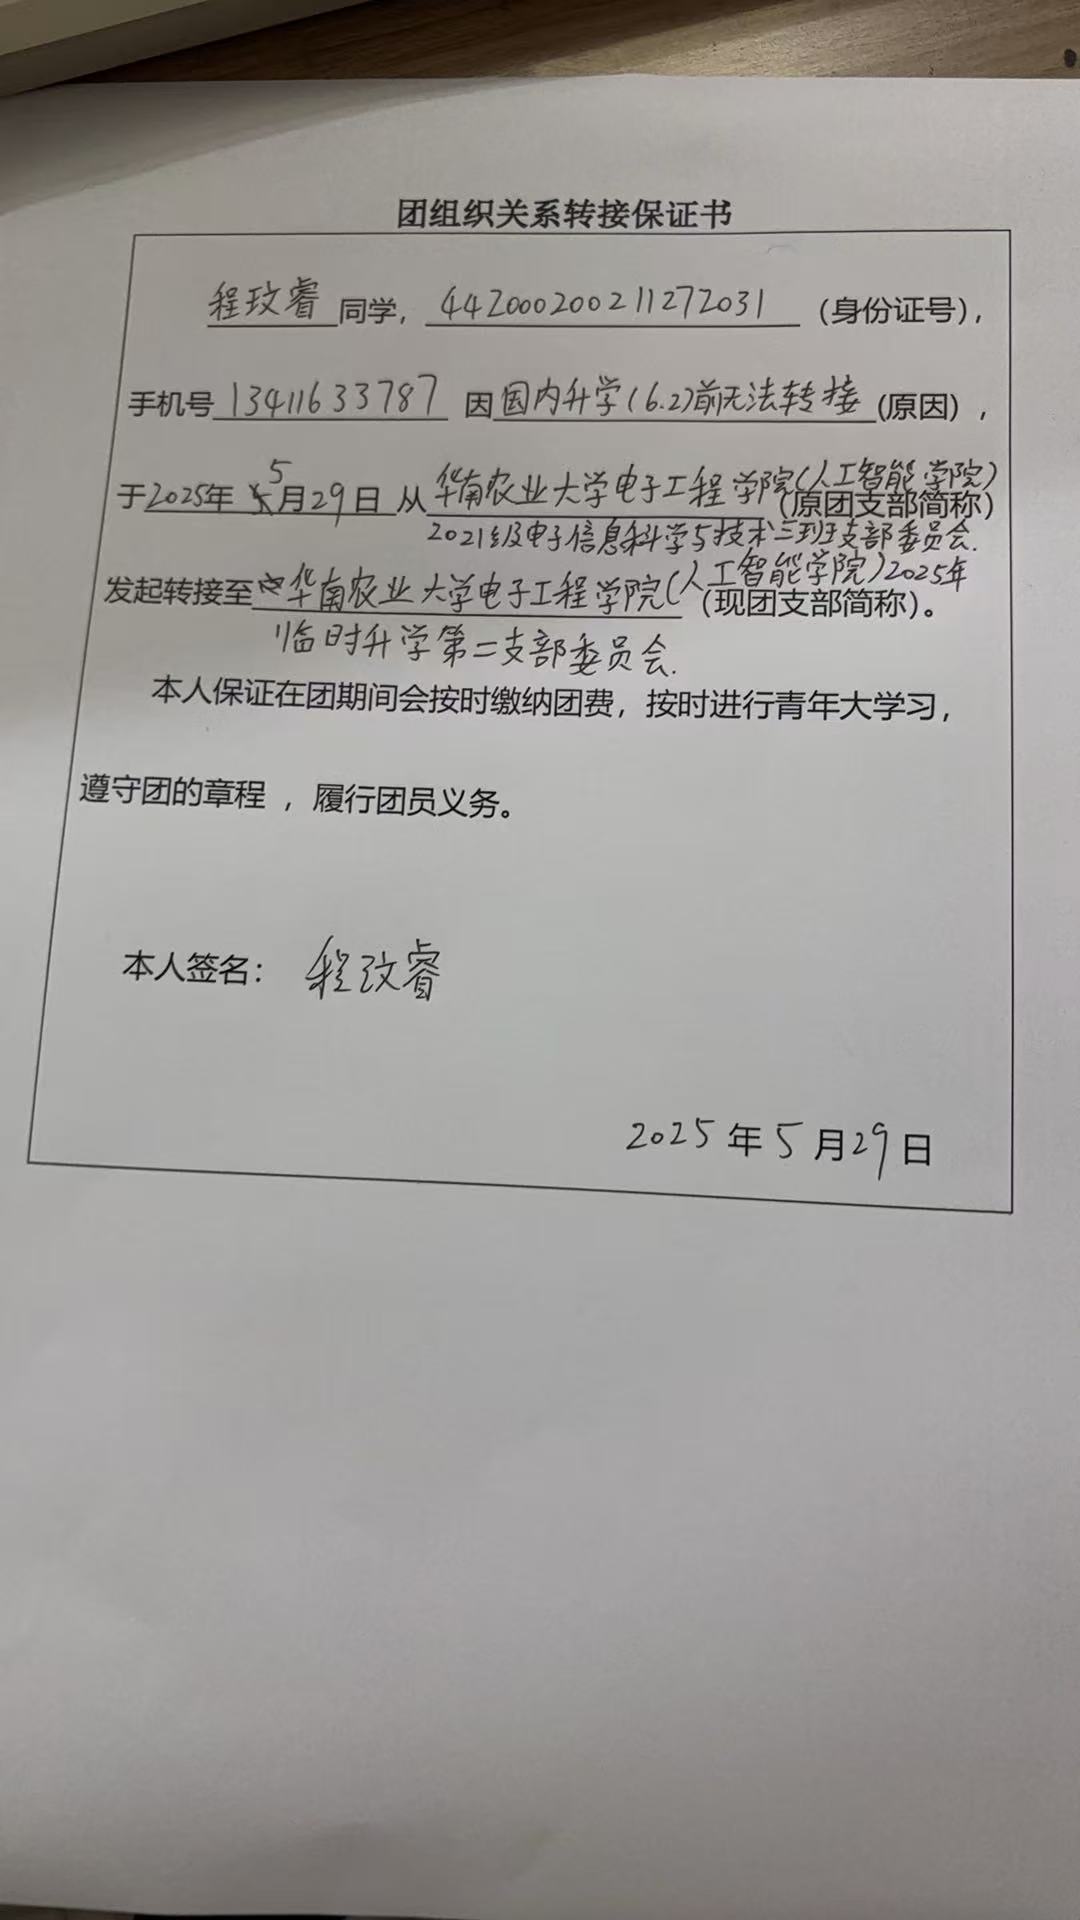 团组织关系转接保证书
程玟睿同学，442000200211272031（身份证号），
手机号13411633787 因国内升学（6.2）前无法转接（原因），
于2025年5月29日从华南农业大学电子工程学院（人工智能学院）（原团支部简称）
2021级电子信息科学与技术三班支部委员会.
发起转接至华南农业大学电子工程学院（人工智能学院）2025年（现团支部简称）。
临时升学第二支部委员会.
本人保证在团期间会按时缴纳团费，按时进行青年大学习，
遵守团的章程，履行团员义务。
本人签名：程玟睿
2025年5月29日